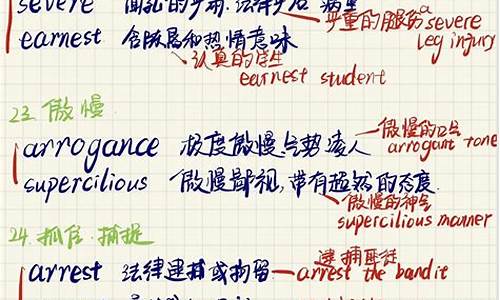 severe
严重的腿伤 a severe leg injury
earnest 含既高和热情意味
认真的学生
earnest student
23. 傲慢
arrogance 极度傲慢气势凌人
傲慢的口气
arrogant tone
supercilious 傲慢鄙视,带有超然的态度.
傲慢的神气
supercilious manner
24. 抓住.捕捉
arrest 法律逮捕或拘留
逮捕匪徒
arrest the bandit